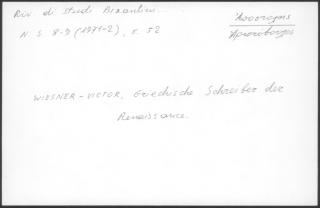 Riv. di studi Bizantini....
N. S. 8-9 (1971-2), p. 52
WIESNER-VICTOR, Griechische Schreiber der
Renaissance.